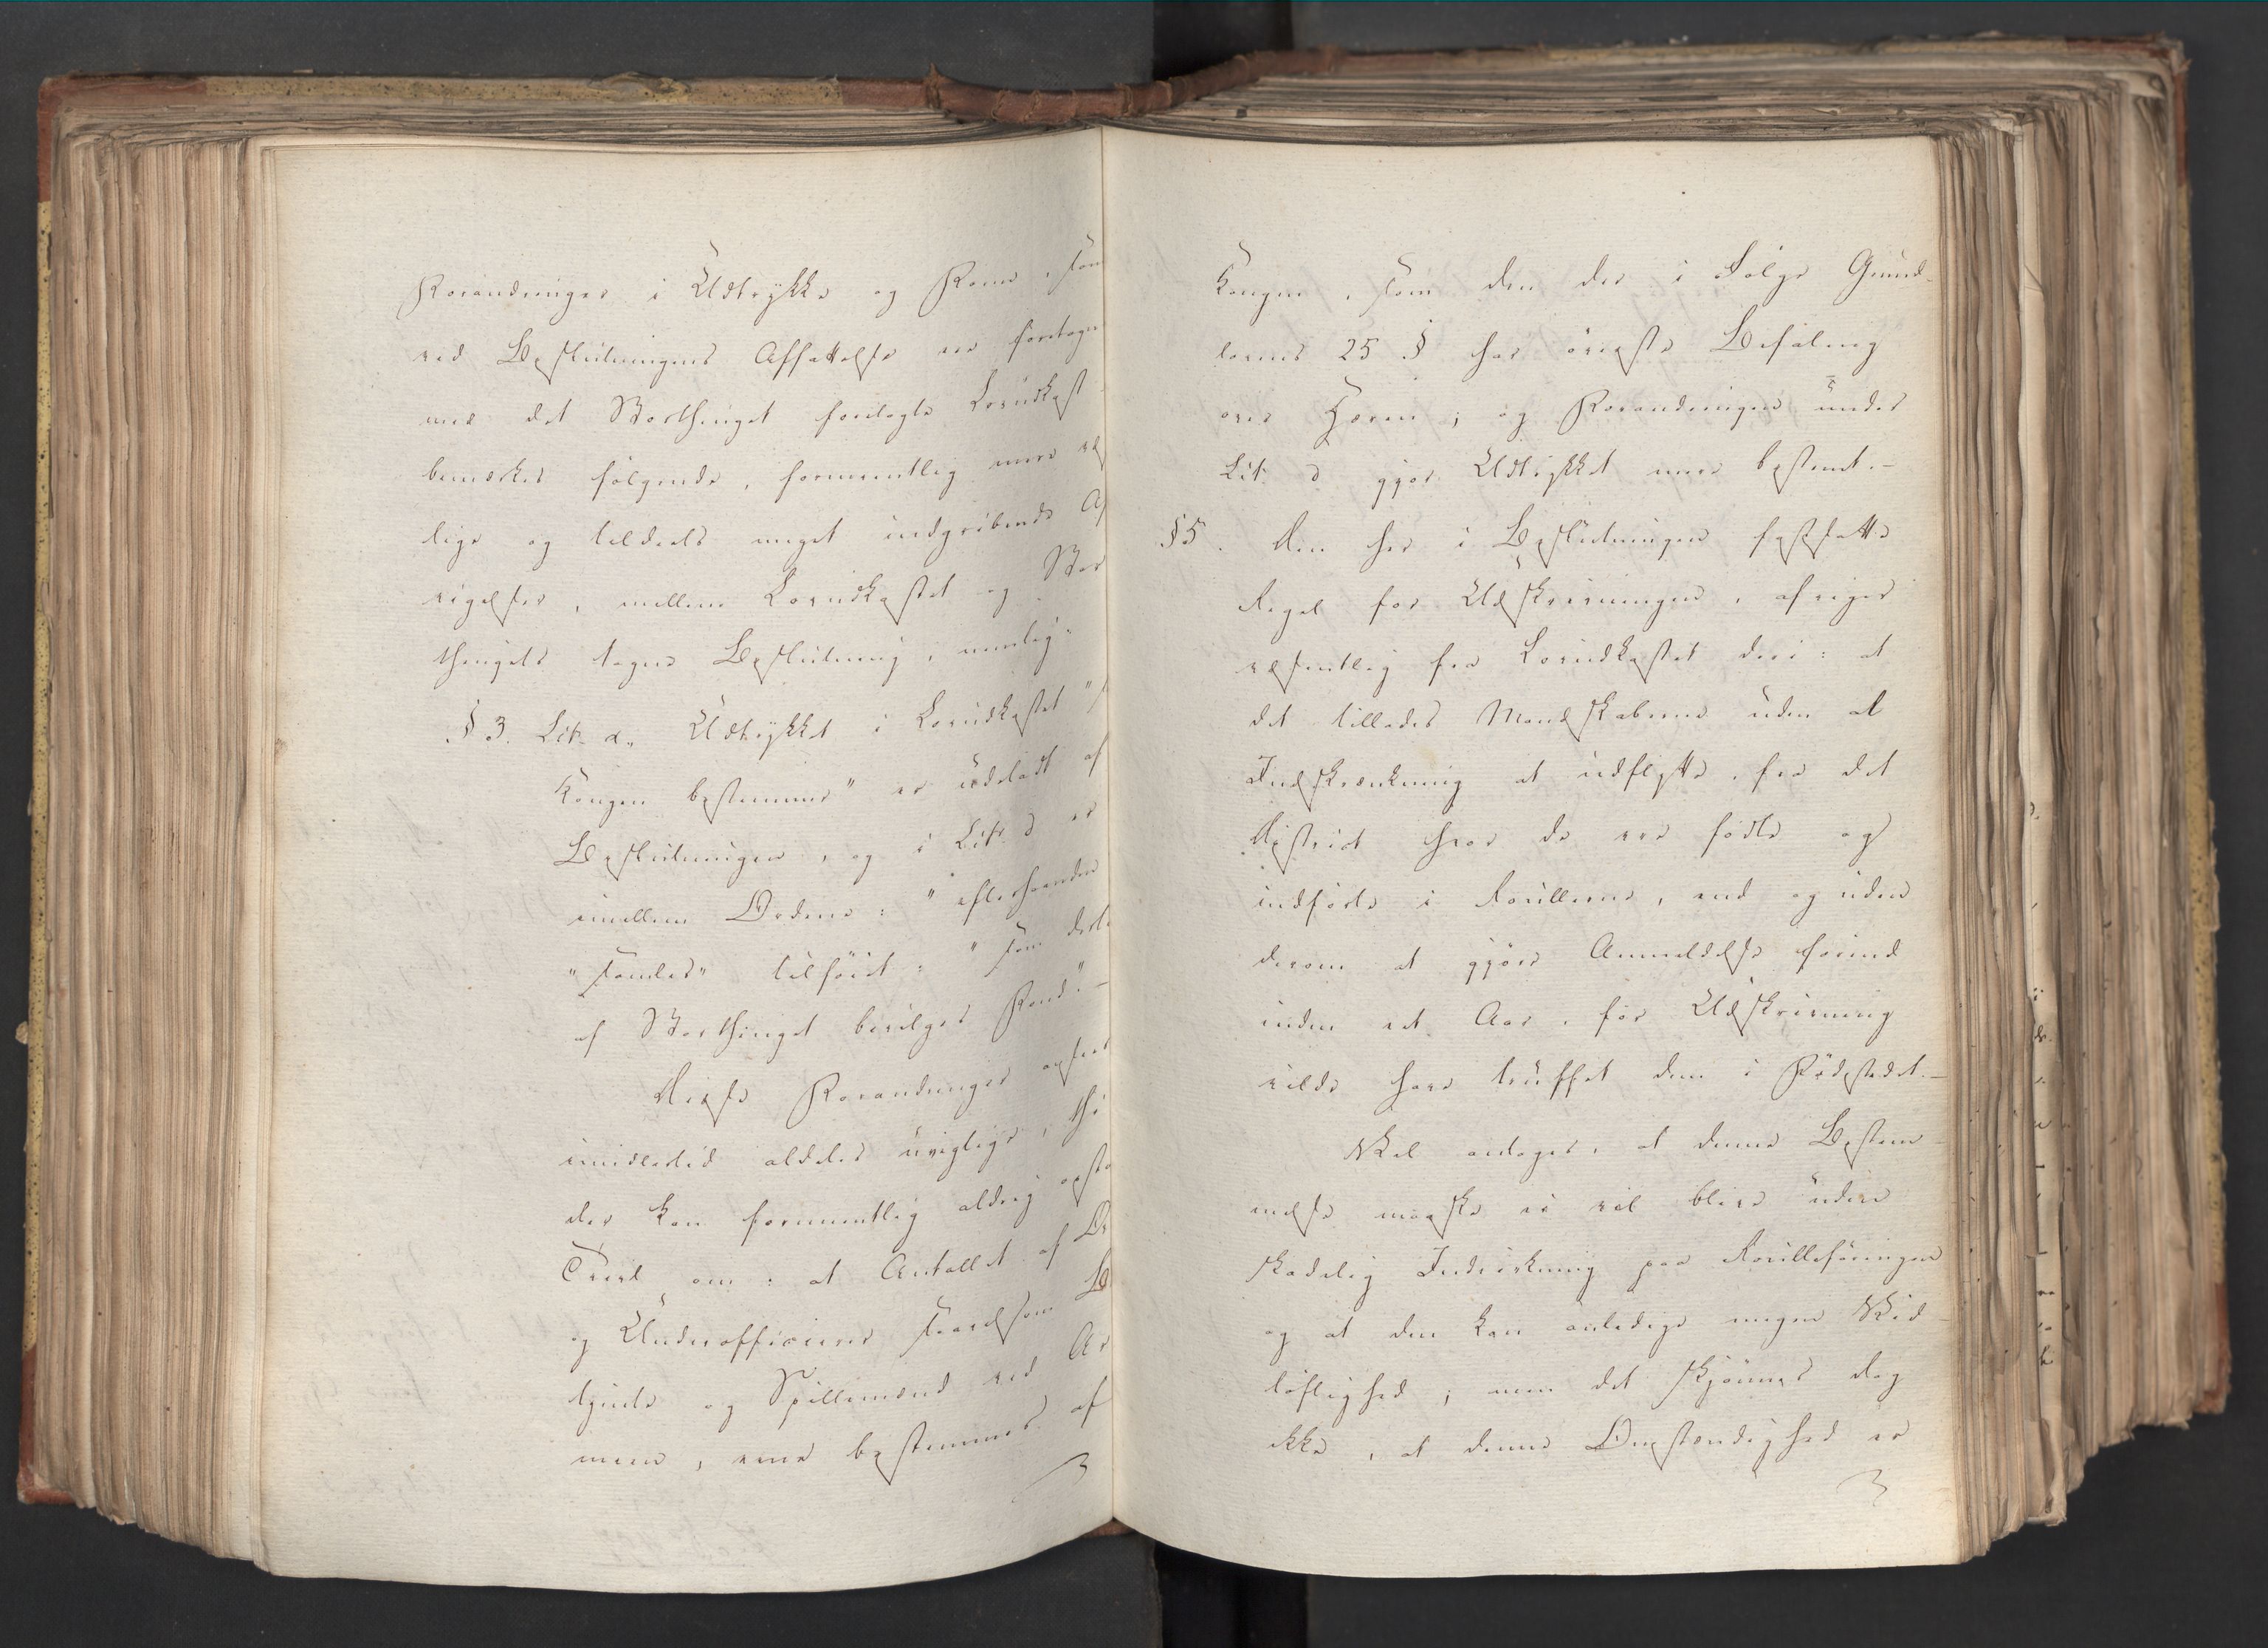 Forandringer i Udtrykke og Form, som
ved Beslutningens Affattelse ere foretagne
med det Storthinget forelagte Lovudkast
bemærkes følgende, formeentlig mere væs
lige og tildeels meget indgribende Af
vigelser, mellem Lovudkastet og Stor
thingets tagne Beslutning, nemlig:
§ 3. Lit. a. Udtrykket i Lovudkastet "
Kongen bestemmer" er udeladt af
Beslutningen, og i Litr d er
imellem Ordene: "efterhaanden
"samles" tilføiet: "som dertil
af Storthinget bevilges Fond". –
Disse Forandringer ansees
imidlertid aldeles uvigtige, thi
der kan formeentlig aldrig opstaa
Tvivl om: at Antallet af Of
og Underofficierer saavelsom Be
tjente og Spillemænd ved Ar
meen, ene bestemmes af
Kongen, som den der i Følge Grund-
lovens 25 § har øverste Befaling
over Hæren; og Forandringen under
Lit. d gjør Udtrykket mere bestemt. –
§ 5. Den her i Beslutningen fastsatte
Regel for Udskrivningen, afviger
væsentlig fra Lovudkastet deri: at
det tillades Mandskaberne uden al
Indskrænkning at udflytte fra det
District hvor de ere fødte og
indførte i Rullerne, end og uden
derom at gjøre Anmeldelse forind
inden et Aar, før Udskrivning
vilde have truffet dem i Fødestedet. –
Vel antages, at denne Bestem-
melse maaske ei vil blive uden
skadelig Indvirkning paa Rulleføringen
og at den kan anledige megen Vid-
løftighed; men det skjønnes dog
ikke, at denne Omstændighed er